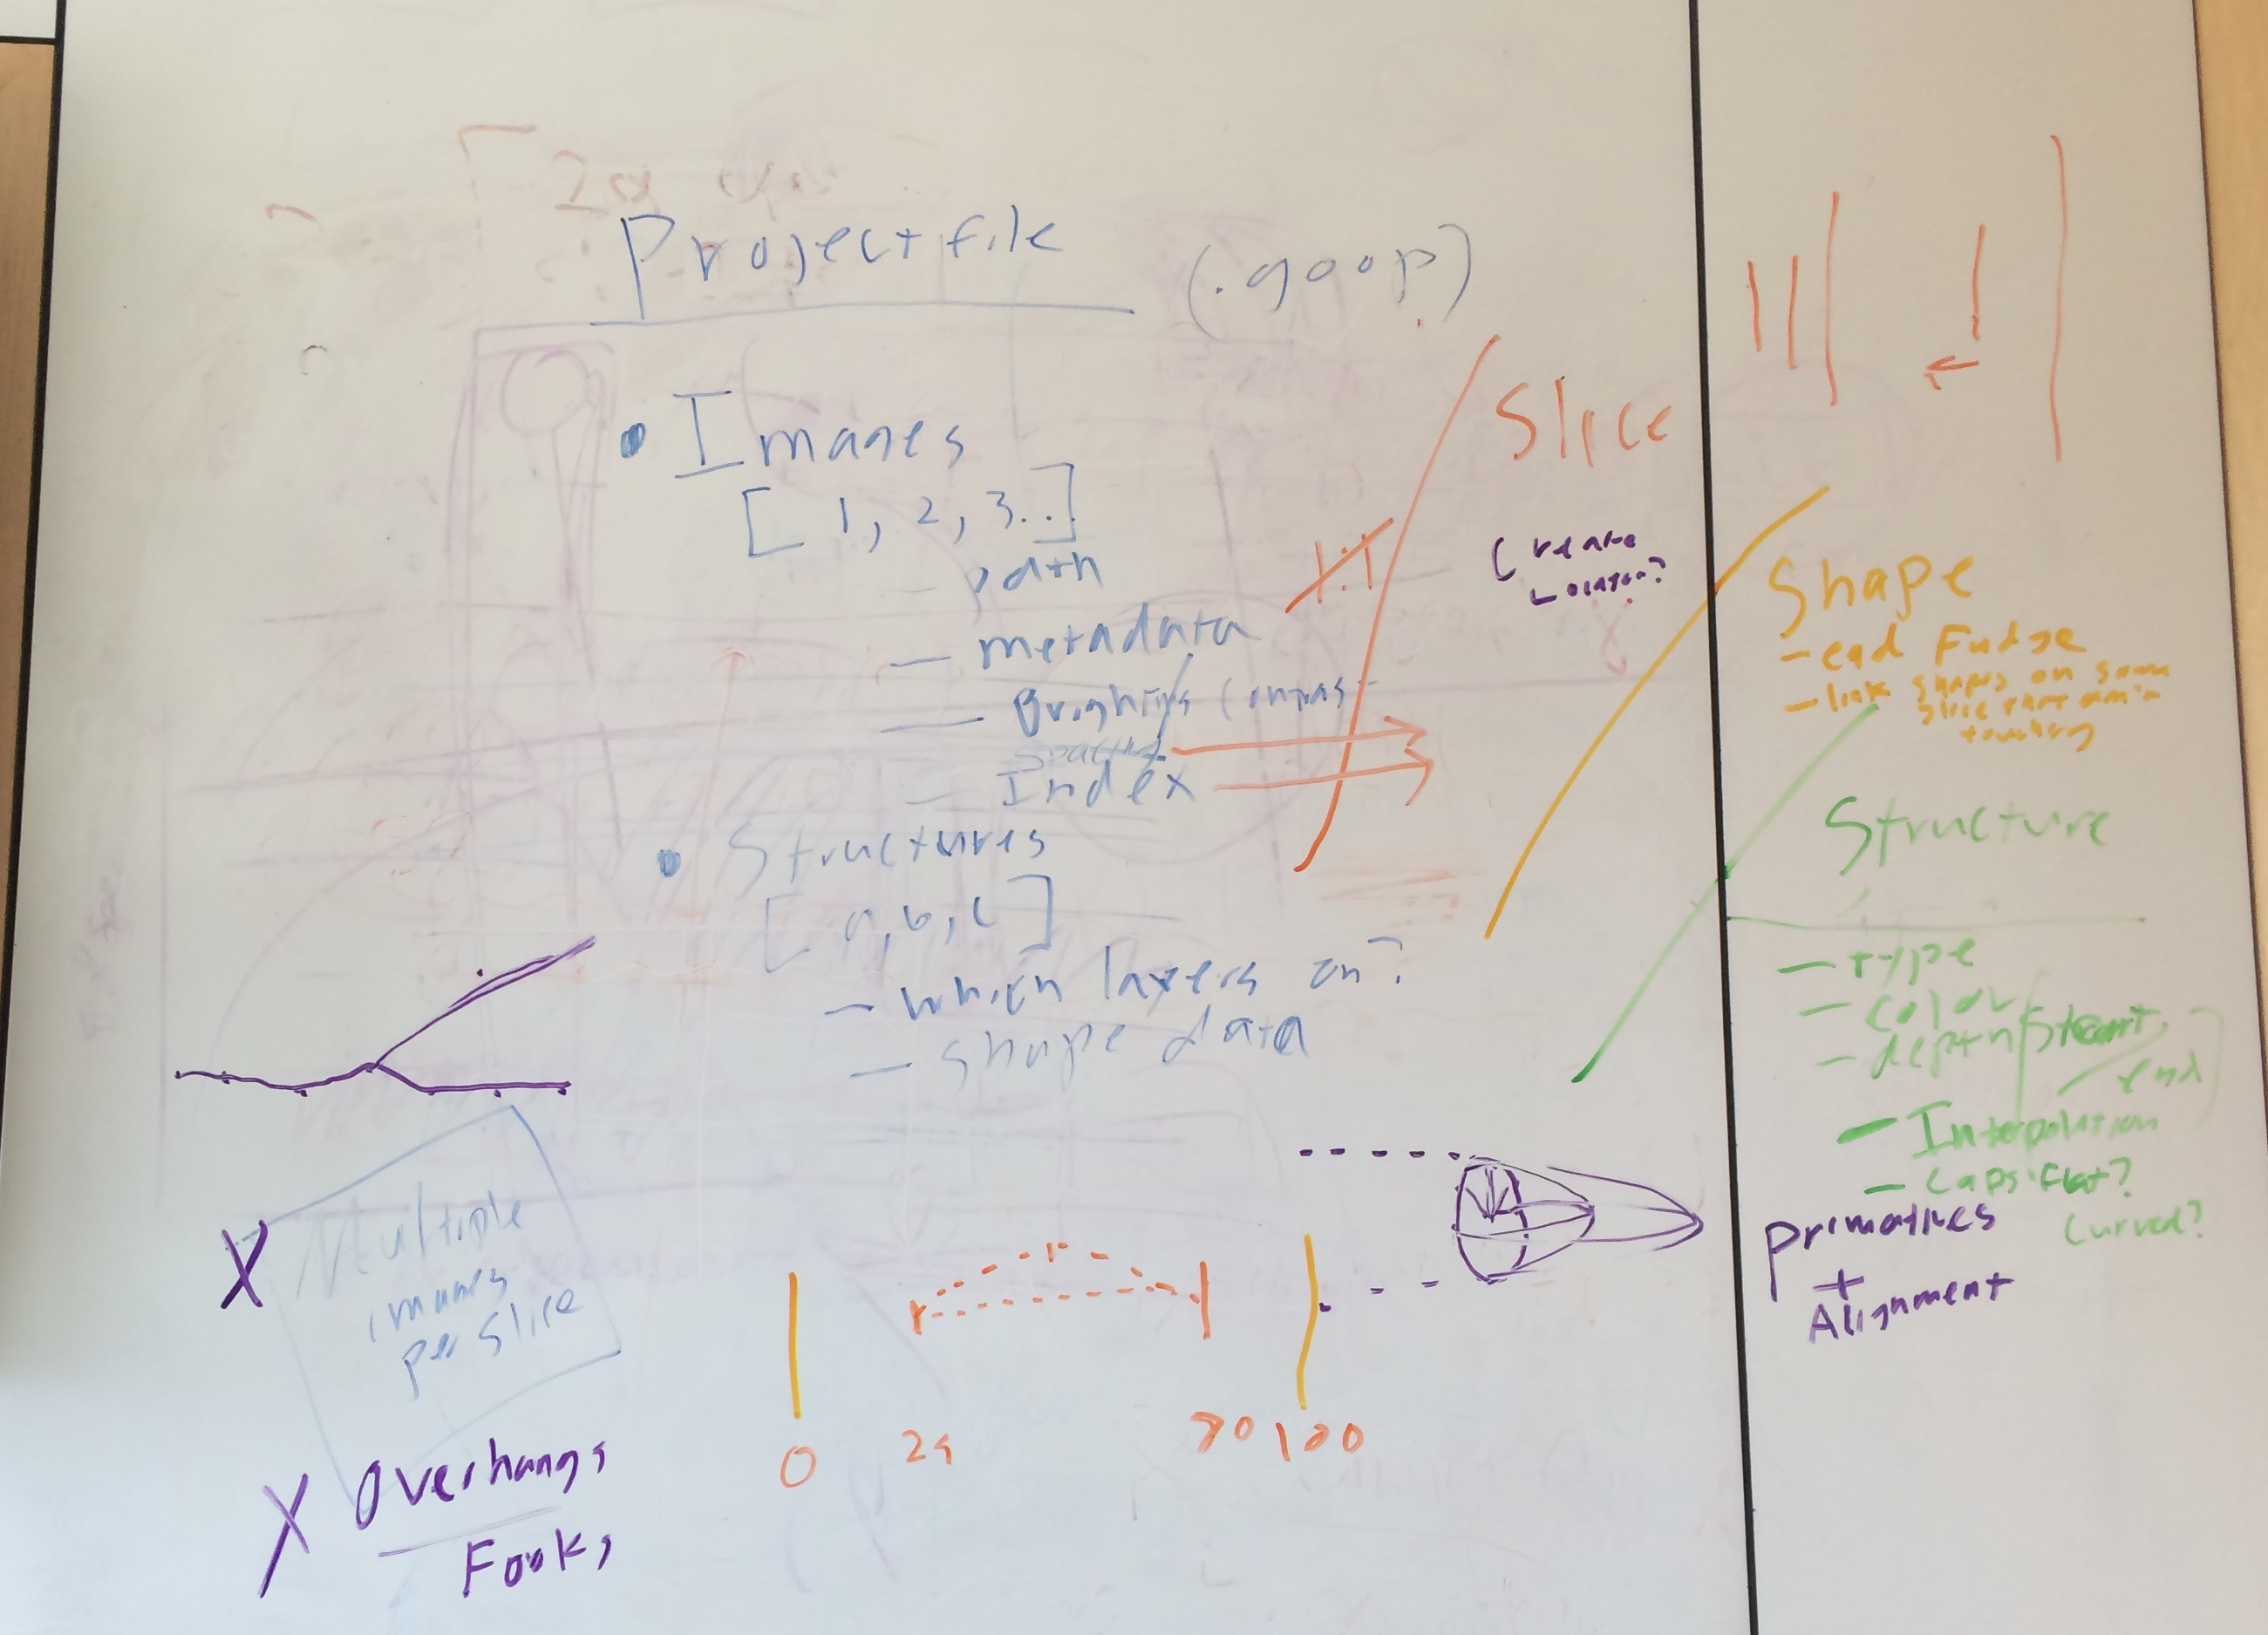 Project file (.goop)
• Images
[1, 2, 3..]
- path
- metadata
- Brightnss
- Index
• Structures
[a, b, c]
- which layers on?
- shape data
Slice
1:1
Create
Location?
Shape
- end Fudge
- link shapes on same
slice that aren't
touching
Structure
- type
- color
- depth/start
end
- Interpolation
- Caps. Flat?
Curved?
Primatives
+
Alignment
X Multiple
images
per slice
0 25 80 100
X Overhangs
Fooks